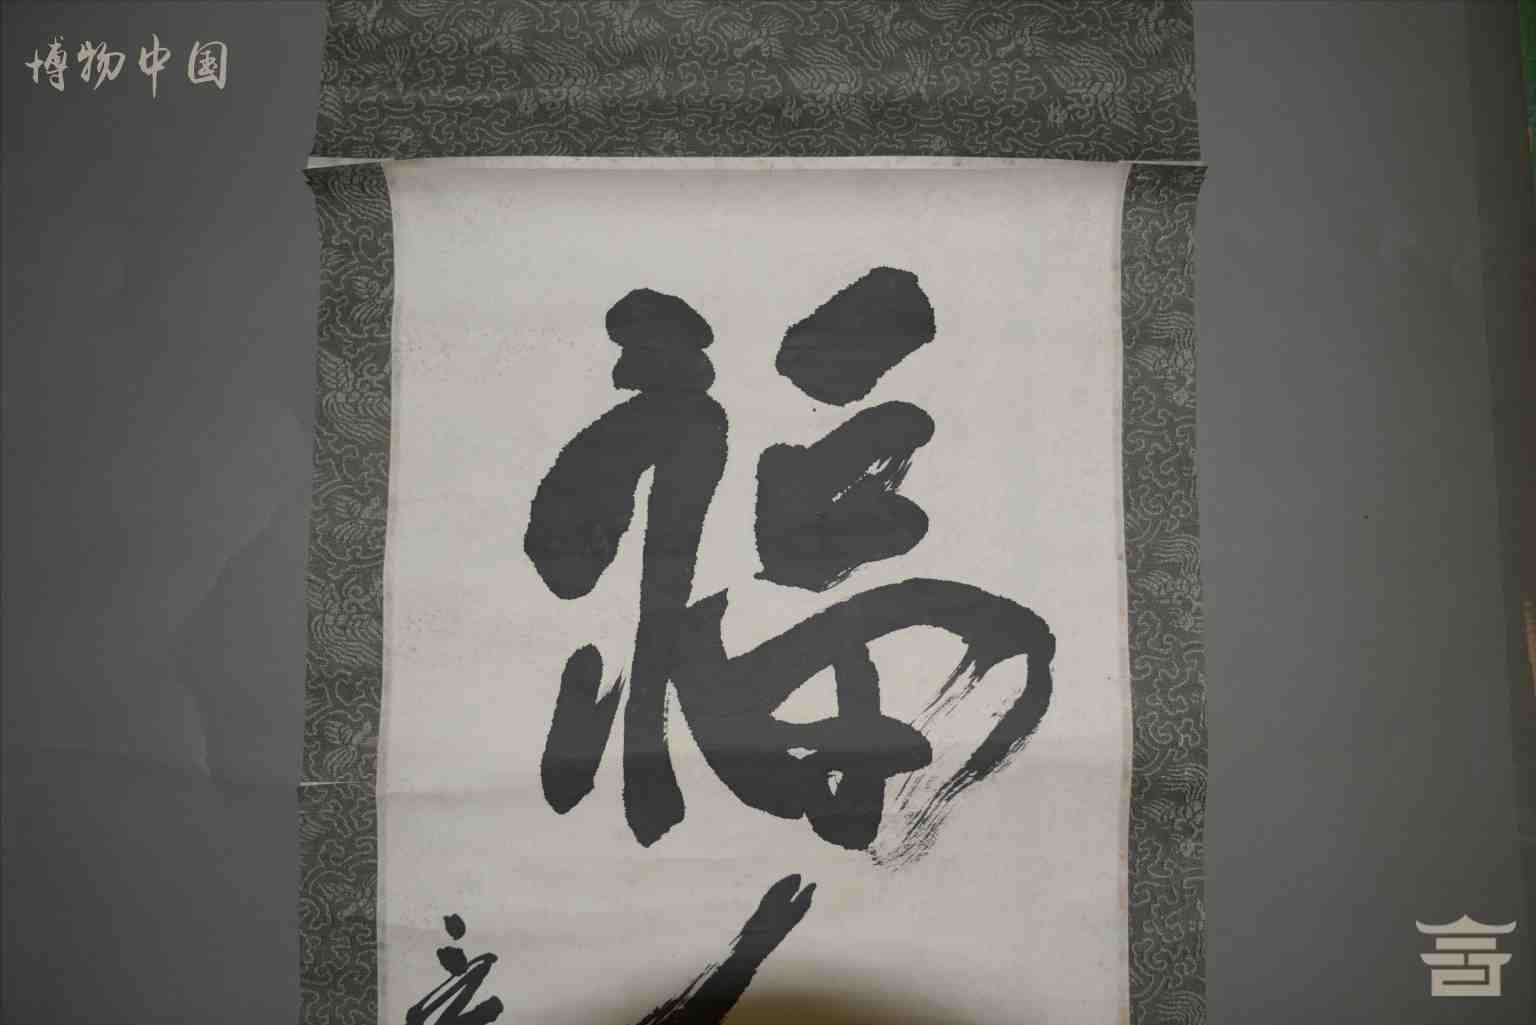 博物中国
福